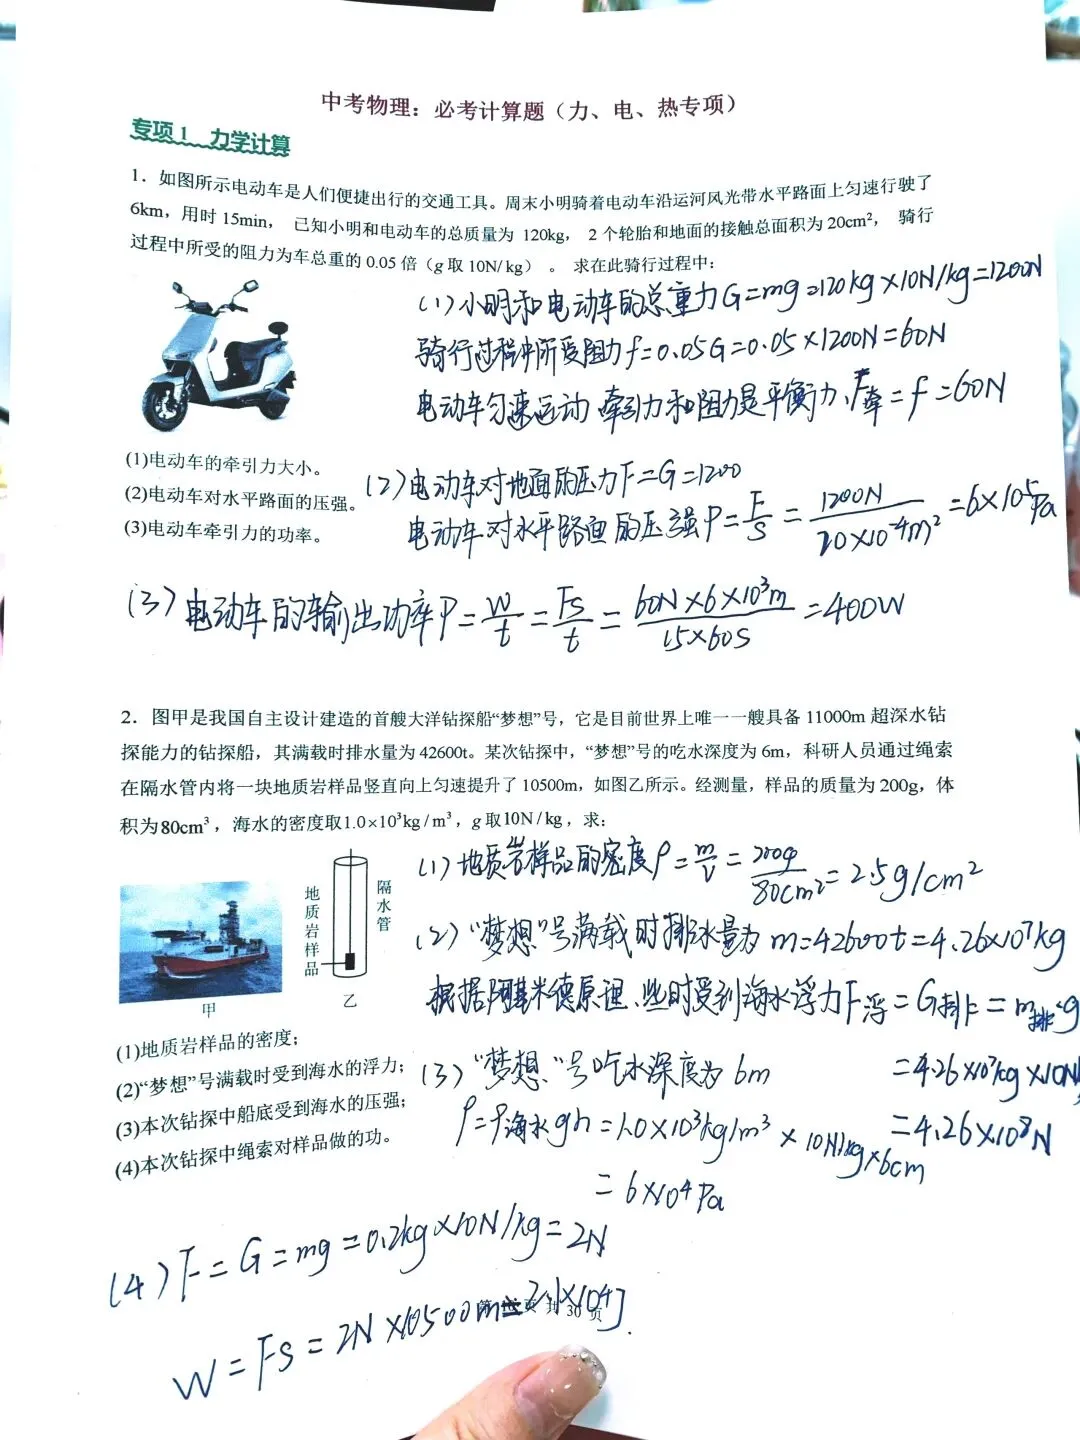 中考物理：必考计算题（力、电、热专项）
专项1 力学计算
1．如图所示电动车是人们便捷出行的交通工具。周末小明骑着电动车沿运河风光带水平路面上匀速行驶了
6km，用时 15min， 已知小明和电动车的总质量为 120kg， 2 个轮胎和地面的接触总面积为 20cm²， 骑行
过程中所受的阻力为车总重的 0.05 倍（g 取 10N/ kg） 。 求在此骑行过程中：
(1)小明和电动车的总重力G=mg=120kg×10N/kg=1200N
骑行过程中所受阻力f=0.05G=0.05×1200N=60N
电动车匀速运动，牵引力和阻力是平衡力、F牵=f=60N
(1)电动车的牵引力大小。
(2)电动车对水平路面的压强。
(3)电动车牵引力的功率。
(2)电动车对地面的压力F=G=1200
电动车对水平路面的压强P=F/S=1200N/20×10⁻⁴m²=6×10⁵Pa
(3)电动车的输出功率P=W/t=Fs/t=60N×6×10³m/15×60S=400W
2．图甲是我国自主设计建造的首艘大洋钻探船“梦想”号，它是目前世界上唯一一艘具备 11000m 超深水钻
探能力的钻探船，其满载时排水量为 42600t。某次钻探中，“梦想”号的吃水深度为 6m，科研人员通过绳索
在隔水管内将一块地质岩样品竖直向上匀速提升了 10500m，如图乙所示。经测量，样品的质量为 200g，体
积为80cm³，海水的密度取1.0×10³kg/m³，g 取10N/kg，求：
(1)地质岩样品的密度ρ=m/V=200g/80cm²=2.5g/cm²
(2)“梦想”号满载时排水量为 m=42600t=4.26×10⁷kg
根据阿基米德原理、此时受到海水浮力F浮=G排=m排·g
=4.26×10⁷kg×10N
=4.26×10⁸N
地质岩样品
隔水管
甲
乙
(1)地质岩样品的密度；
(2)“梦想”号满载时受到海水的浮力；
(3)本次钻探中船底受到海水的压强；
(4)本次钻探中绳索对样品做的功。
(3)“梦想”号吃水深度为6m
P=ρ海水gh=1.0×10³kg/m³×10N/kg×6cm
=6×10⁴Pa
(4)F=G=mg=0.2kg×10N/kg=2N
W=FS=2N×10500m=2.1×10⁴J
第 页 共 30 页